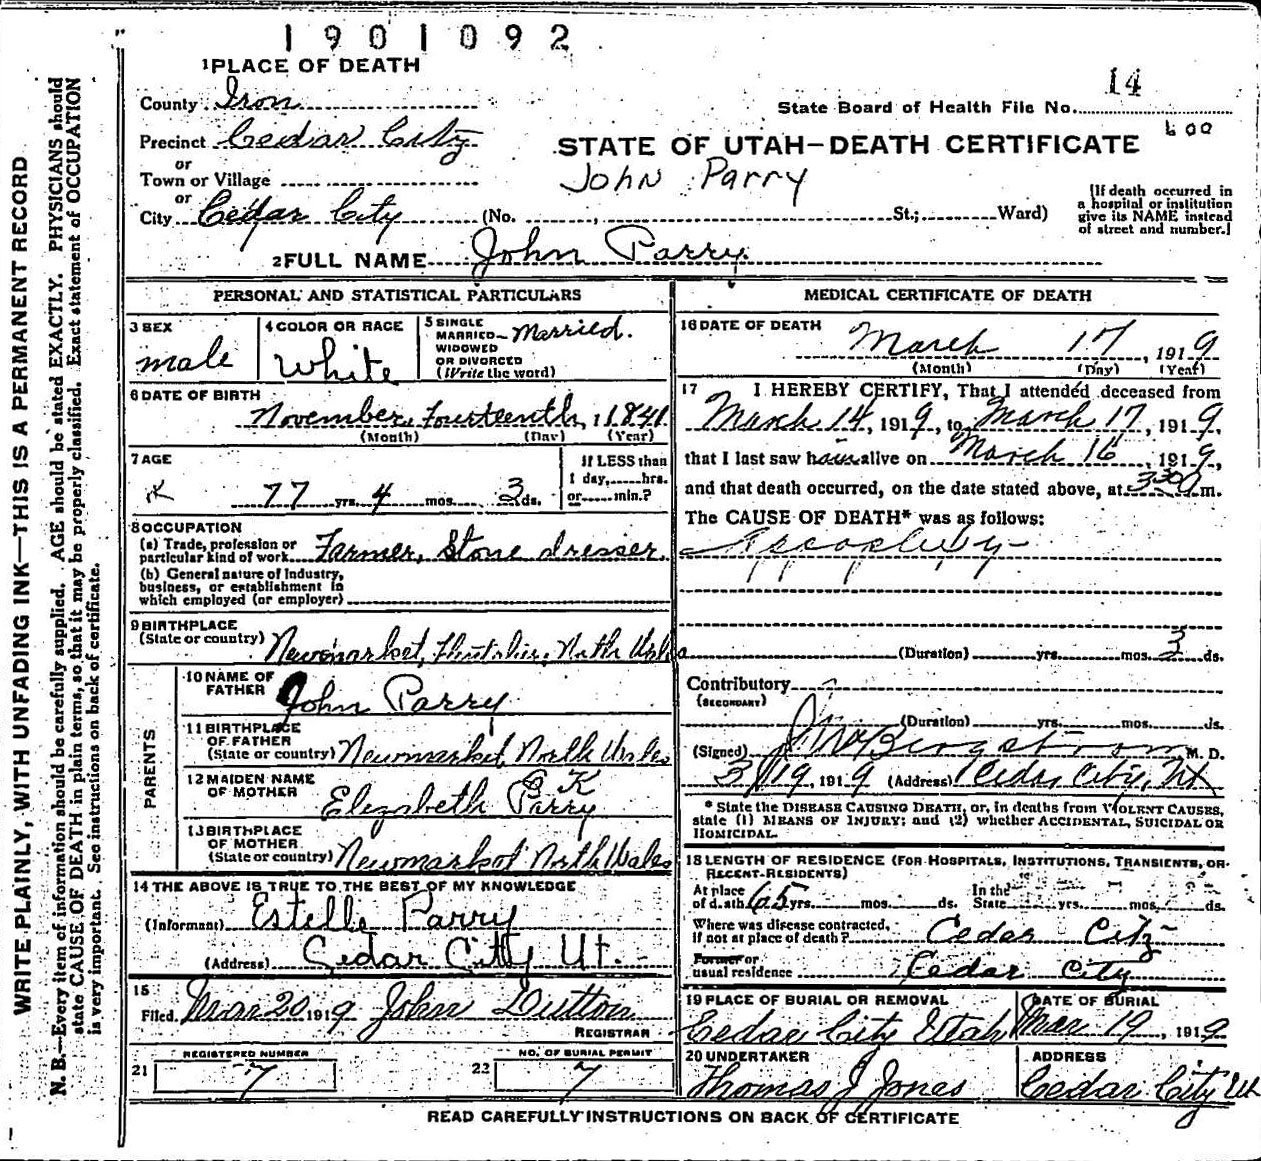 1901092
1 PLACE OF DEATH
County Iron
Precinct Cedar City
or
Town or Village
or
City Cedar City (No. , St.; Ward)
14
State Board of Health File No.
600
STATE OF UTAH—DEATH CERTIFICATE
John Parry
[If death occurred in
a hospital or institution
give its NAME instead
of street and number.]
2 FULL NAME John Parry.
PERSONAL AND STATISTICAL PARTICULARS
3 SEX
male
4 COLOR OR RACE
White
5 SINGLE
MARRIED— Married.
WIDOWED
OR DIVORCED
(Write the word)
6 DATE OF BIRTH
November, Fourteenth, 1841.
(Month) (Day) (Year)
7 AGE
77 yrs. 4 mos. 3 ds.
If LESS than
1 day, hrs.
or min.?
8 OCCUPATION
(a) Trade, profession or
particular kind of work Farmer, Stone dresser.
(b) General nature of Industry,
business, or establishment in
which employed (or employer)
9 BIRTHPLACE
(State or country) Newmarket, North Wales
PARENTS
10 NAME OF
FATHER John Parry
11 BIRTHPLACE
OF FATHER
(State or country) Newmarket North Wales
12 MAIDEN NAME
OF MOTHER Elizabeth Parry
13 BIRTHPLACE
OF MOTHER
(State or country) Newmarket North Wales
14 THE ABOVE IS TRUE TO THE BEST OF MY KNOWLEDGE
(Informant) Estelle Parry
(Address) Cedar Citty Ut.
15
Filed Mar 20 1919 John Dutton
REGISTRAR
REGISTERED NUMBER
21 7
NO. OF BURIAL PERMIT
22 7
MEDICAL CERTIFICATE OF DEATH
16 DATE OF DEATH
March 17, 1919
(Month) (Day) (Year)
17 I HEREBY CERTIFY, That I attended deceased from
March 14, 1919, to March 17, 1919,
that I last saw him alive on March 16, 1919,
and that death occurred, on the date stated above, at 3:30 a m.
The CAUSE OF DEATH* was as follows:
(Duration) yrs. mos. 3 ds.
Contributory
(SECONDARY)
(Duration) yrs. mos. ds.
(Signed) Bergstrom M. D.
3/19, 1919 (Address) Cedar City, Ut
* State the DISEASE CAUSING DEATH, or, in deaths from VIOLENT CAUSES,
state (1) MEANS OF INJURY; and (2) whether ACCIDENTAL, SUICIDAL OR
HOMICIDAL.
18 LENGTH OF RESIDENCE (FOR HOSPITALS, INSTITUTIONS, TRANSIENTS, OR
RECENT RESIDENTS)
At place
of death 65 yrs. mos. ds.
In the
State yrs. mos. ds.
Where was disease contracted,
if not at place of death? Cedar City
Former or
usual residence Cedar City
19 PLACE OF BURIAL OR REMOVAL
Cedar City Utah
DATE OF BURIAL
Mar 19, 1919
20 UNDERTAKER
Thomas J Jones
ADDRESS
Cedar City Ut
READ CAREFULLY INSTRUCTIONS ON BACK OF CERTIFICATE
WRITE PLAINLY, WITH UNFADING INK—THIS IS A PERMANENT RECORD
N. B.—Every item of information should be carefully supplied. AGE should be stated EXACTLY. PHYSICIANS should
state CAUSE OF DEATH in plain terms, so that it may be properly classified. Exact statement of OCCUPATION
is very important. See instructions on back of certificate.